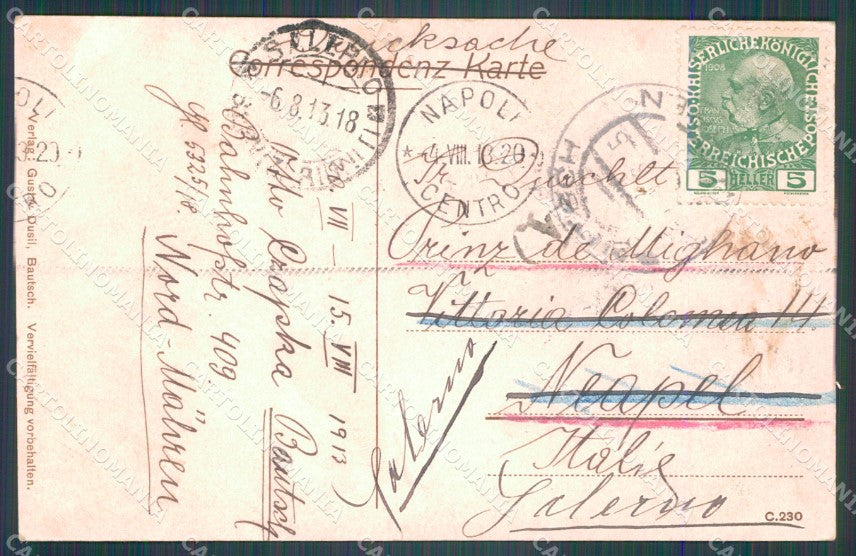 Drucksache
Correspondenz Karte
NAPOLI
* 4.VIII.13-20
CENTRO
6.8.13.18
KAISERLICHE KÖNIGLICHE
ÖSTERREICHISCHE POST
1908
FRANZ
JOSEPH I
5 HELLER 5
Prinz de Mighano
Vittoria Colonna III
Neapel
Italie
Salerno
Salerno
C.230
VII – 15. VIII 1913
Otto Czapka Bautsch
Bahnhofstr. 409
Nord-Mähren
Verlag Gustav Dusil, Bautsch. Vervielfältigung vorbehalten.
CARTOLINOMANIA